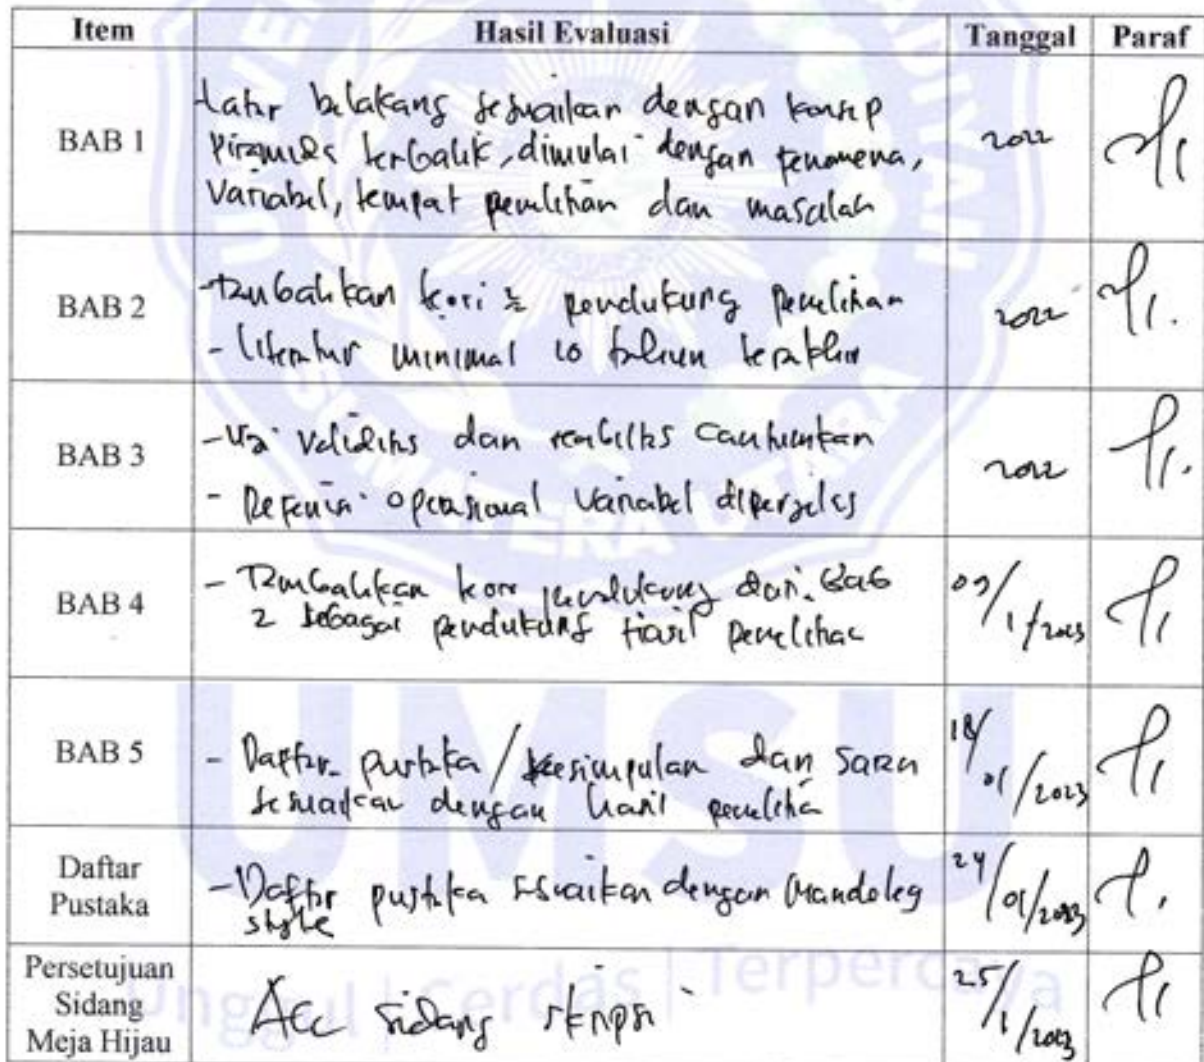 Item Hasil Evaluasi Tanggal Paraf
BAB 1
Latar belakang sesuaikan dengan konsep
Piramida terbalik, dimulai dengan fenomena,
Variabel, tempat penelitian dan masalah
2022
BAB 2
- Tambahkan teori2 pendukung penelitian
- literatur minimal 10 tahun terakhir
2022
BAB 3
- Uji Validitas dan reabilitas cantumkan
- Defenisi operasional variabel diperjelas
2022
BAB 4
- Tambahkan teori pendukung dari Bab
2 sebagai pendukung hasil penelitian
1/2023
BAB 5
- Daftar pustaka / Kesimpulan dan Saran
sesuaikan dengan hasil penelitian
18/01/2023
Daftar
Pustaka
- Daftar pustaka sesuaikan dengan Mandeley
style
24/01/2023
Persetujuan
Sidang
Meja Hijau
Acc Sidang skripsi
25/1/2023
SUMATERA UTARA
UMSU
Unggul | Cerdas | Terpercaya